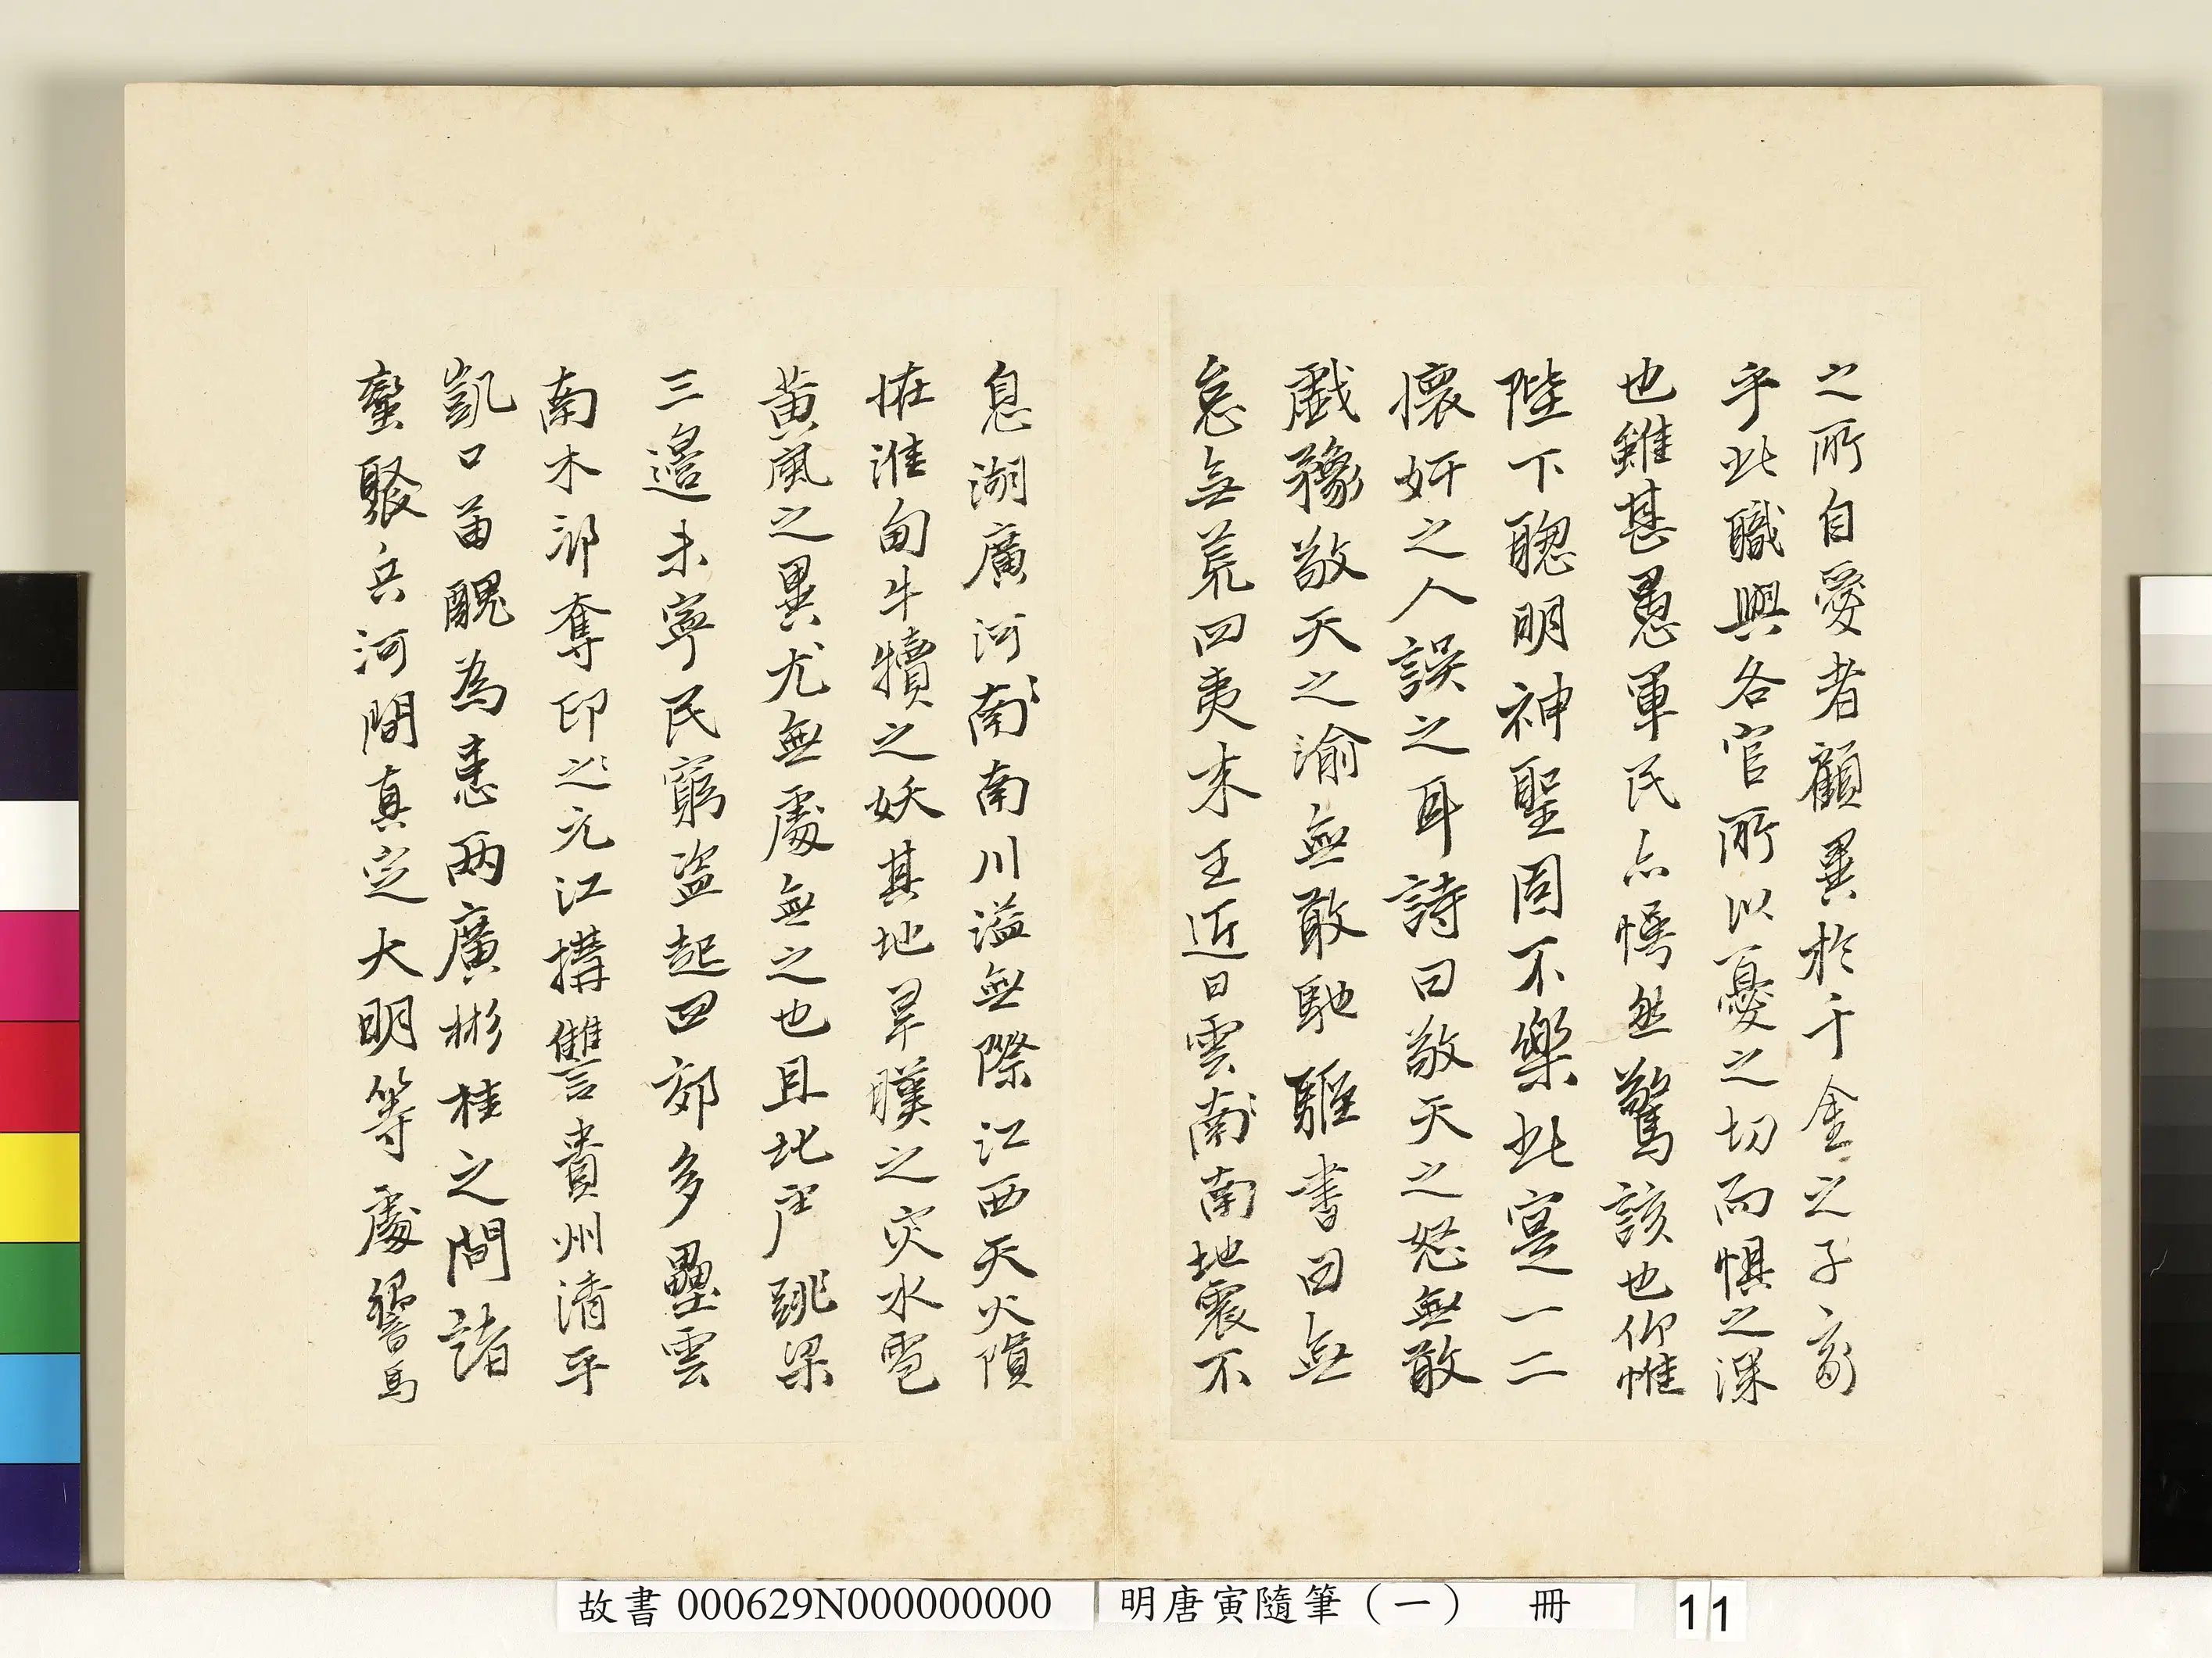 之所自愛者顧異於千金之子豪
乎此職與各官所以憂之切而懼之深
也雖甚愚軍民亦愕然驚該也仰惟
陛下聰明神聖固不樂此寔一二
懷奸之人誤之耳詩曰敬天之怒無敢
戲豫敬天之渝無敢馳驅書曰無
怠無荒四夷来王近日雲南南地震不
息湖廣河南南川溢無際江西天火隕
在淮甸牛犢之妖其地旱暵之灾水雹
黃風之異尤無處無之也且北虜跳梁
三邊未寧民窮盜起四郊多壘雲
南木邦奪印之元江搆讐貴州清平
凱口苗醜為患兩廣彬桂之間諸
蠻聚兵河間真定大明等處響馬
故書 000629N000000000
明唐寅隨筆（一） 冊
11